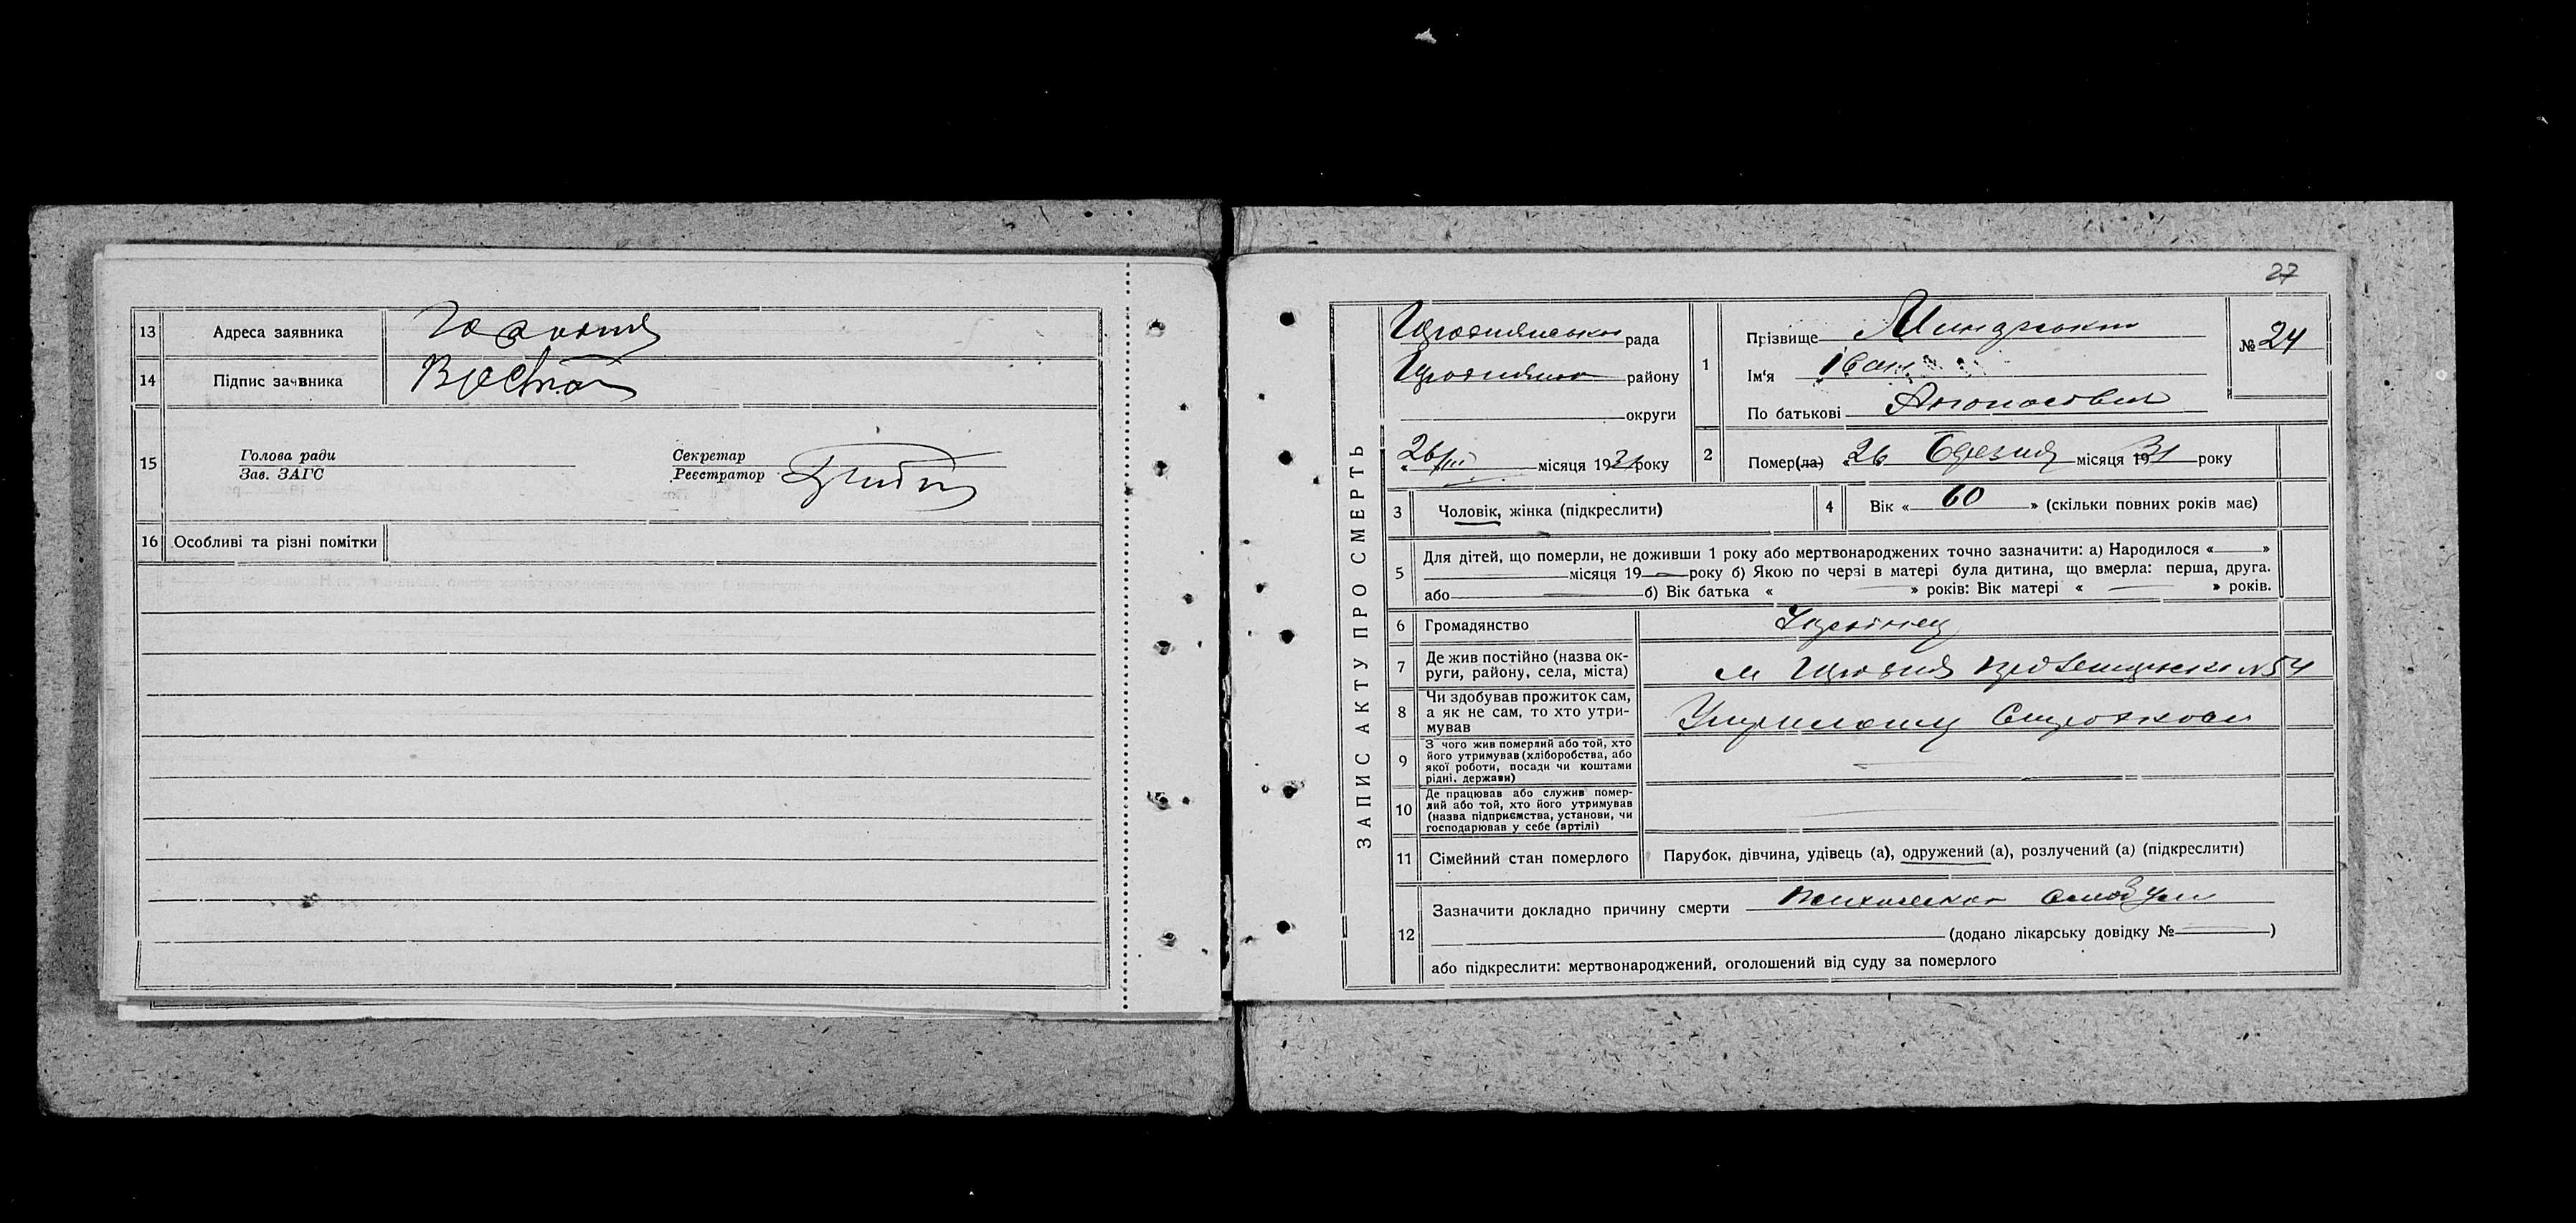 13 Адреса заявника
14 Підпис заявника
15 Голова ради
Зав. ЗАГС
Секретар
Реєстратор
16 Особливі та різні помітки
27
ЗАПИС АКТУ ПРО СМЕРТЬ
рада
району
округи
26/III місяця 1931 року
1 Прізвище
Ім'я Іван
По батькові
№ 24
2 Помер(ла) 26 Березня місяця 1931 року
3 Чоловік, жінка (підкреслити)
4 Вік « 60 » (скільки повних років має)
5 Для дітей, що померли, не доживши 1 року або мертвонароджених точно зазначити: а) Народилося « »
місяця 19 року б) Якою по черзі в матері була дитина, що вмерла: перша, друга.
або б) Вік батька « » років: Вік матері « » років.
6 Громадянство Українец
7 Де жив постійно (назва ок-
руги, району, села, міста) м №54
8 Чи здобував прожиток сам,
а як не сам, то хто утри-
мував
9 З чого жив померлий або той, хто
його утримував (хліборобства, або
якої роботи, посади чи коштами
рідні, держави)
10 Де працював або служив помер-
лий або той, хто його утримував
(назва підприємства, установи, чи
господарював у себе (артілі)
11 Сімейний стан померлого Парубок, дівчина, удівець (а), одружений (а), розлучений (а) (підкреслити)
12 Зазначити докладно причину смерти
(додано лікарську довідку № )
або підкреслити: мертвонароджений, оголошений від суду за померлого